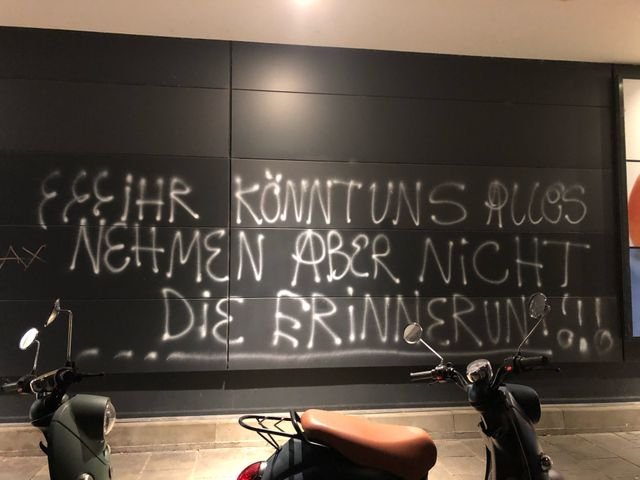 EEE iHR KÖNNT UNS ALLeS
AX NEHMEN ABER NiCHT
DiE ERiNNERUNG!!